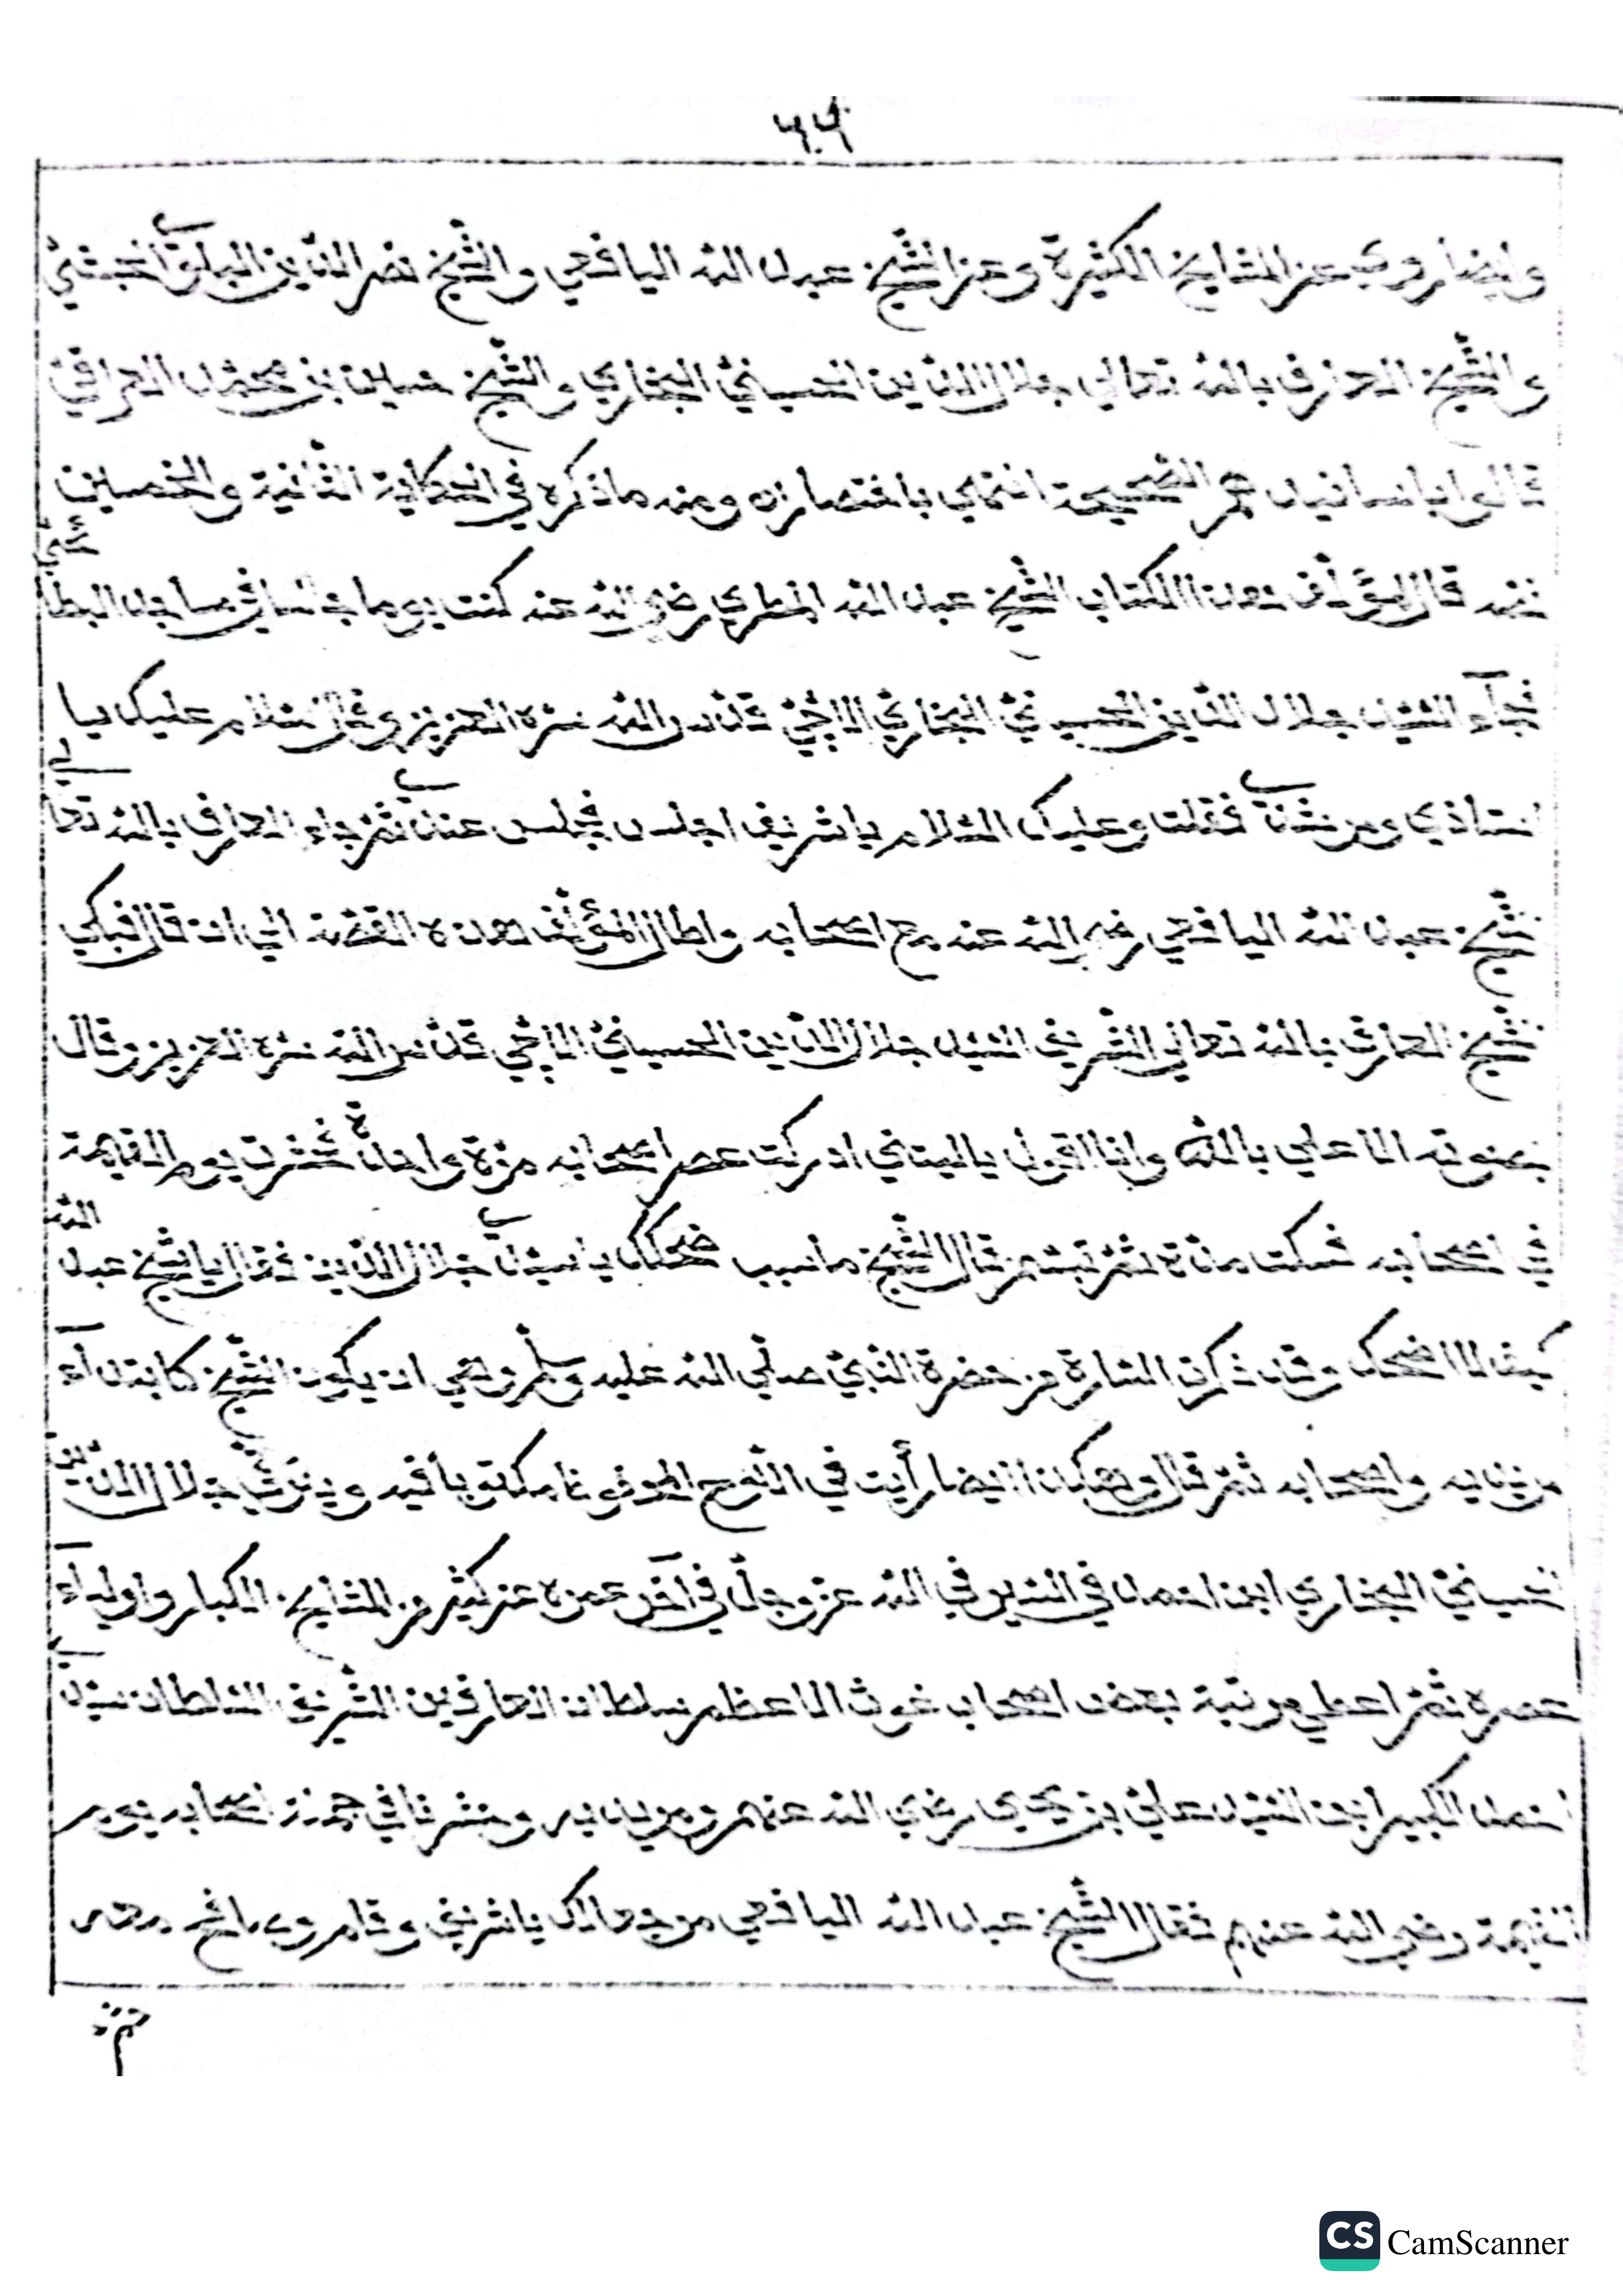 وايضا روي عن المشايخ الكثيرة وعن الشيخ عبد الله اليافعي والشيخ نصر الدين
والشيخ العارف بالله تعالي جلال الدين الحسيني البخاري والشيخ حسين بن محمد العراقي
قالوا الصحيحة انتهي باختصاره ومنه ماذكره في الحكاية الثانية والخمسين
قال مؤلف هذا الكتاب الشيخ عبد الله المطري رضي الله عنه كنت يوما
فجاء السيد جلال الدين الحسيني البخاري قدس الله سره العزيز وقال السلام عليك يا
استاذي ومرشدي فقلت وعليك السلام يا شريف اجلس فجلس عندي ثم جاء العارف بالله تعالي
الشيخ عبد الله اليافعي رضي الله عنه مع اصحابه واطال المؤلف هذه القصة الي ان قال فبكي
الشيخ العارف بالله تعالي الشريف السيد جلال الدين الحسيني قدس الله سره العزيز وقال
بصوته الاعلي بالله وانا اقول يا ليتني ادركت عصر اصحابه مرة واحدة فحشرت يوم القيمة
في اصحابه فسكت مدة ثم تبسم قال الشيخ ما سبب ضحكك يا سيدي جلال الدين فقال يا شيخ عبد الله
كيف لا اضحك وقد ذكرت من حضرة النبي صلي الله عليه وسلم وهي ان يكون الشيخ
مريديه واصحابه ثم قال وهكذا ايضا رأيت في اللوح المحفوظ مكتوبا فيه جلال الدين
الحسيني البخاري ابن احمد في السير في الله عز وجل في آخر عمره عن كثير من المشايخ الكبار واولياء
عصره ثم اعطي مرتبة بعض اصحاب غوث الاعظم سلطان العارفين الشريف السلطان سيدي
احمد الكبير ابن السيد علي بن يحيي رضي الله عنهم ومريديه وحشرنا في اصحابه يوم
القيمة رضي الله عنهم فقال الشيخ عبد الله اليافعي مرحبا لك يا شريف وقام
CS CamScanner